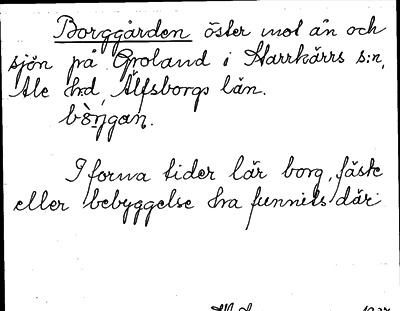 Borggården öster mot ån och
sjön på Groland i Starrkärrs s:n,
Ale hd, Älfsborgs län.
bò̀ŋgan.
I forna tider lär borg, fäste
eller bebyggelse ha funnits där